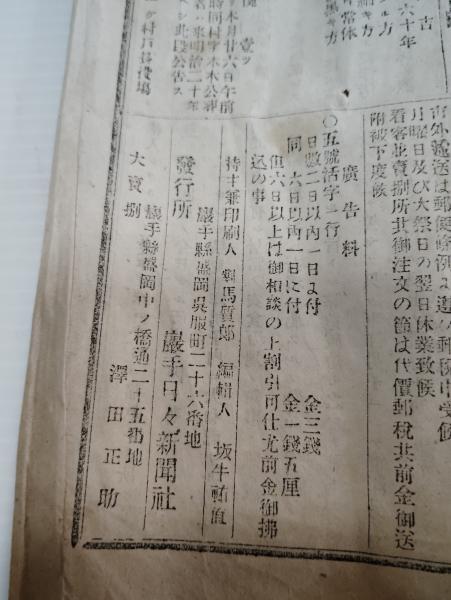 古
六十年
ル方
細キ方
年常休
黒キ方
壹ツ
本月廿六日午前
時間村字木木公葬
者ハ來明治二十年
シ此段公告ス
ヶ村戸長役場
市外遞送は郵便條例
月曜日及び大祭日の翌日休業致候
看客並賣捌所共御注文の節は代價郵税共前金御送
附被下度候
廣告料
〇五號活字一行
日數二日以內一日ニ付 金三錢
同 六日以內一日に付 金一錢五厘
但六日以上は御相談の上割引可仕尤前金御拂
込の事
持主兼印刷人 馬質郎 編輯人 坂牛祐直
巖手縣盛岡吳服町二十六番地
發行所 巖手日々新聞社
巖手縣盛岡中ノ橋通二十五番地
大賣捌 澤田正助